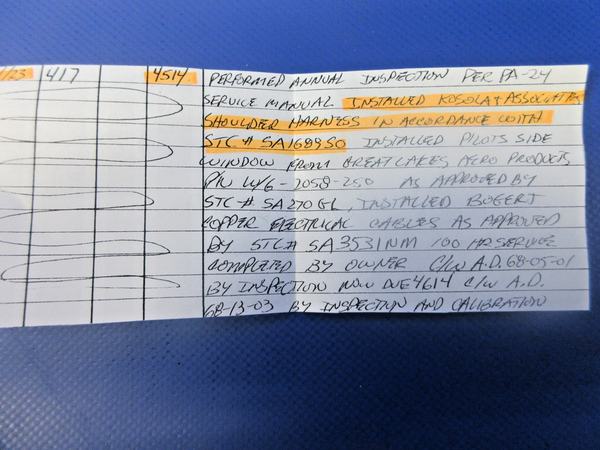 /23 417 4514 PERFORMED ANNUAL INSPECTION PER PA-24
SERVICE MANUAL INSTALLED KOSOLA & ASSOCIATES
SHOULDER HARNESS IN ACCORDANCE WITH
STC # SA1689SO INSTALLED PILOTS SIDE
WINDOW FROM GREAT LAKES AERO PRODUCTS
P/N W/G-2058-250 AS APPROVED BY
STC # SA270GL, INSTALLED BOGERT
COPPER ELECTRICAL CABLES AS APPROVED
BY STC# SA3531NM 100 HR SERVICE
COMPLETED BY OWNER C/W A.D. 68-05-01
BY INSPECTION NOW DUE 4614 C/W A.D.
68-13-03 BY INSPECTION AND CALIBRATION